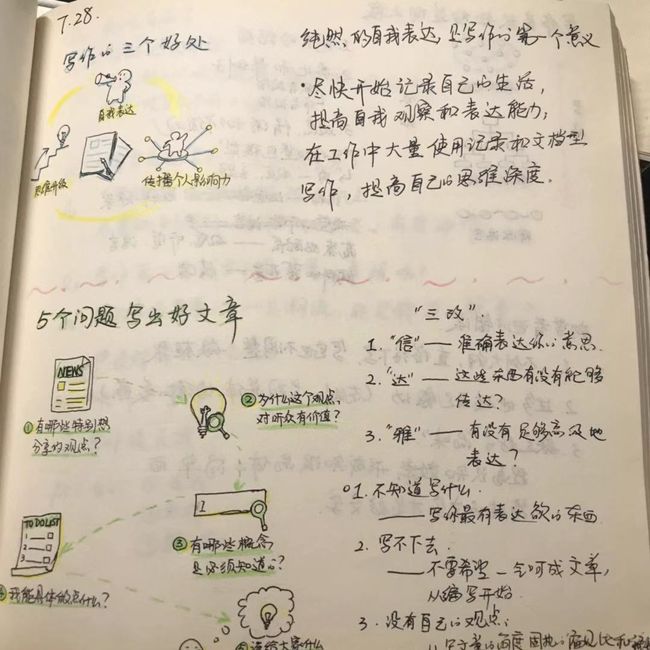 7.28.
写作的三个好处
自我表达
思维升级
传播个人影响力
纯然的自我表达是写作的第一个意义
·尽快开始记录自己的生活,
提高自我观察和表达能力;
在工作中大量使用记录和文档型
写作,提高自己的思维深度.
5个问题 写出好文章
NEWS
①有哪些特别想
分享的观点?
②为什么这个观点,
对听众有价值?
③有哪些概念
是必须知道的?
TO DO LIST
1
2
3
④我能具体做点什么?
"三改":
1."信"——准确表达你的意思.
2."达"——这些东西有没有能够
传达?
3."雅"——有没有足够高级地
表达?
1.不知道写什么.
——写你最有表达欲的东西
2.写不下去.
——不要希望一气呵成文章,
从编写开始.
3.没有自己的观点: